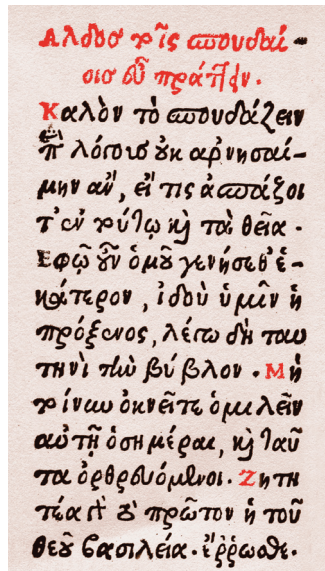 Ἄλδος τοῖς σπουδαί-
οις εὖ πράττειν.
Καλὸν τὸ σπουδάζειν
ἐπὶ λόγοις οὐκ ἀρνησαί-
μην ἄν, εἴ τις ἀσπάζοι
τ' ἐν τούτῳ καὶ τὰ θεῖα.
Ἐφ ᾧ οὖν ὁμοῦ γενήσεσθ' ἑ-
κάτερον, ἰδοὺ ὑμῖν ἡ
πρόξενος, λέγω δὴ ταυ
τηνὶ τὴν βύβλον. Μὴ
τοίνυν ὀκνεῖτε ὁμιλεῖν
αὐτῇ ὁσημέραι, καὶ ταῦ
τα ὀρθρευόμενοι. Ζητη
τέα γὰρ πρῶτον ἡ τοῦ
θεοῦ βασιλεία. ἔρρωσθε.